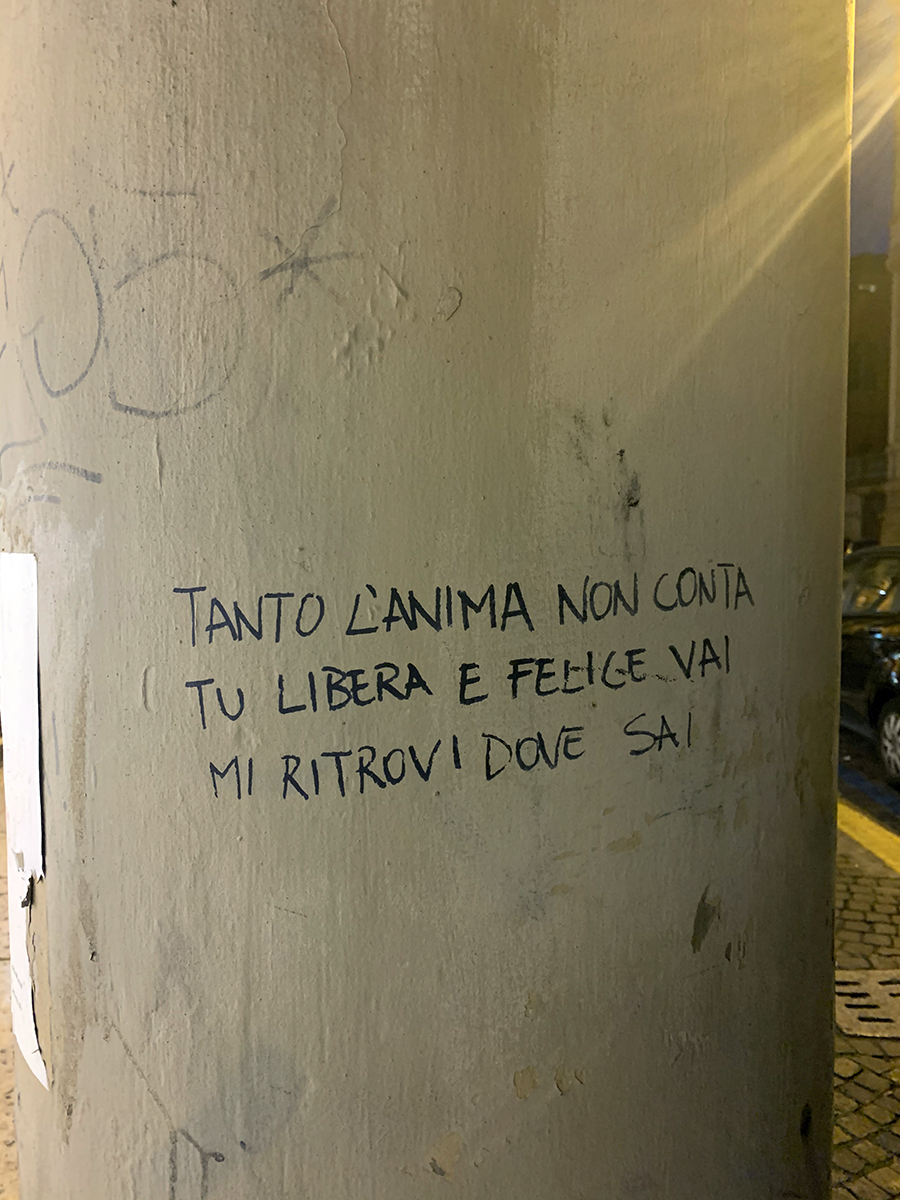 TANTO L'ANIMA NON CONTA
TU LIBERA E FELICE VAI
MI RITROVI DOVE SAI